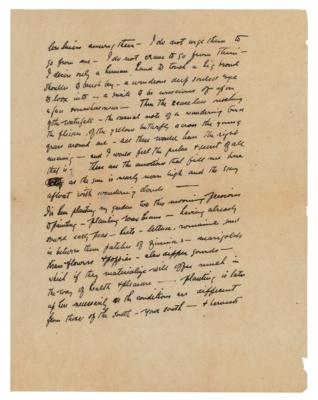 less hives among them — I do not urge them to
go from me — I do not crave to go from them —
I desire only a human hand to touch a big broad
shoulder to brush by — a wondrous deep soulless eye
to look into — a smile to be conscious of upon
a face somewhere — Then the ceaseless rushing
of the waterfall — the casual note of a wandering bird
the flicker of the yellow butterfly across the young
grass around me — all these would have the right
meaning — and I would feel the pulse & secret of all
that is! These are the emotions that fill me here
as the sun is nearly noon high and the sky
afloat with wandering clouds —
I've been planting my garden too this morning
planting — planting beans — having already
sowed early peas — beets — lettuce, romaine and
in between them patches of zinnias — marigolds
flowers & poppies — also dipper gourds —
which if they materialize will offer much in
the way of health & pleasure — planting is later
up here necessarily as the conditions are different
from those of the South — your south — & harvests